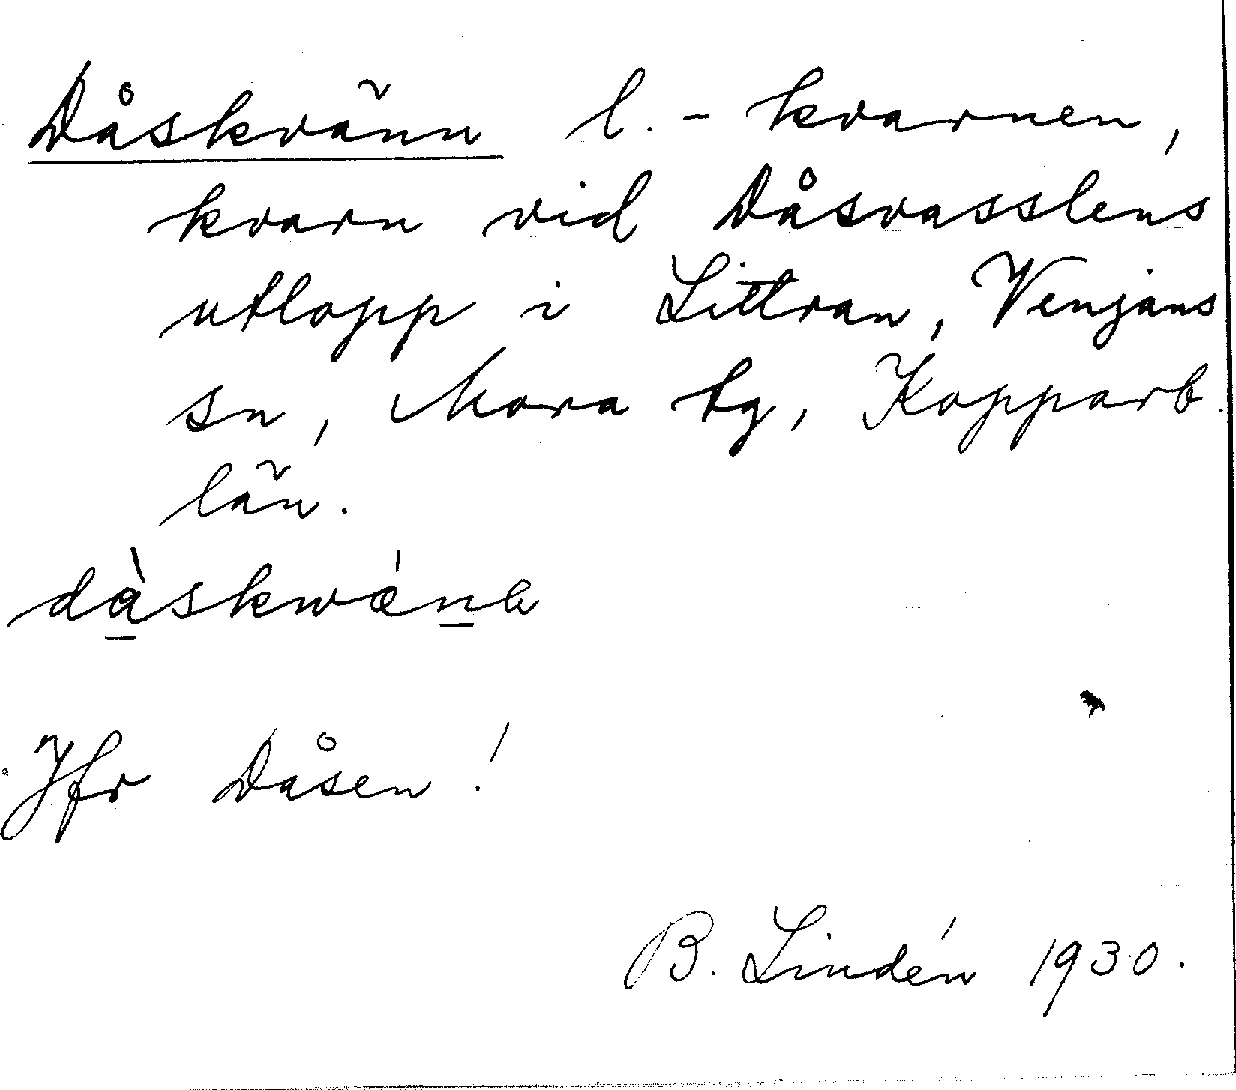 Dåskvänn l. -kvarnen,
kvarn vid Dåsvasslens
utlopp i Littran, Venjans
sn, Mora tg, Kopparb.
län.
dàskwǽnn
Jfr Dåsen!
B. Lindén 1930.